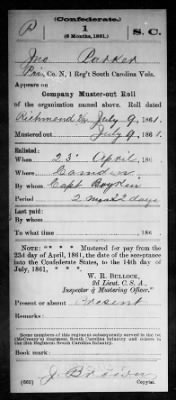 (Confederate.)
P 1 S. C.
(6 Months, 1861.)
Jno Parker
Pri, Co. N, 1 Reg't South Carolina Vols.
Appears on
Company Muster-out Roll
of the organization named above. Roll dated
Richmond Va July 9, 1861.
Mustered out July 9, 1861.
Enlisted:
When 23 April, 1861.
Where Camden
By whom Capt Boykin
Period 2 mos 22 days
Last paid:
By whom
To what time 186 .
NOTE: * * * Mustered for pay from the
23d of April, 1861, the date of the acceptance
into the Confederate States, to the 14th day of
July, 1861, * * *
W. R. BULLOCK,
2d Lieut. C. S. A.,
Inspector & Mustering Officer."
Present or absent Present
Remarks:
Some members of this regiment subsequently served in the 1st
(McCreary's) Regiment South Carolina Infantry and others in
the 26th Regiment South Carolina Infantry.
Book mark:
J. B.
(662) Copyist.